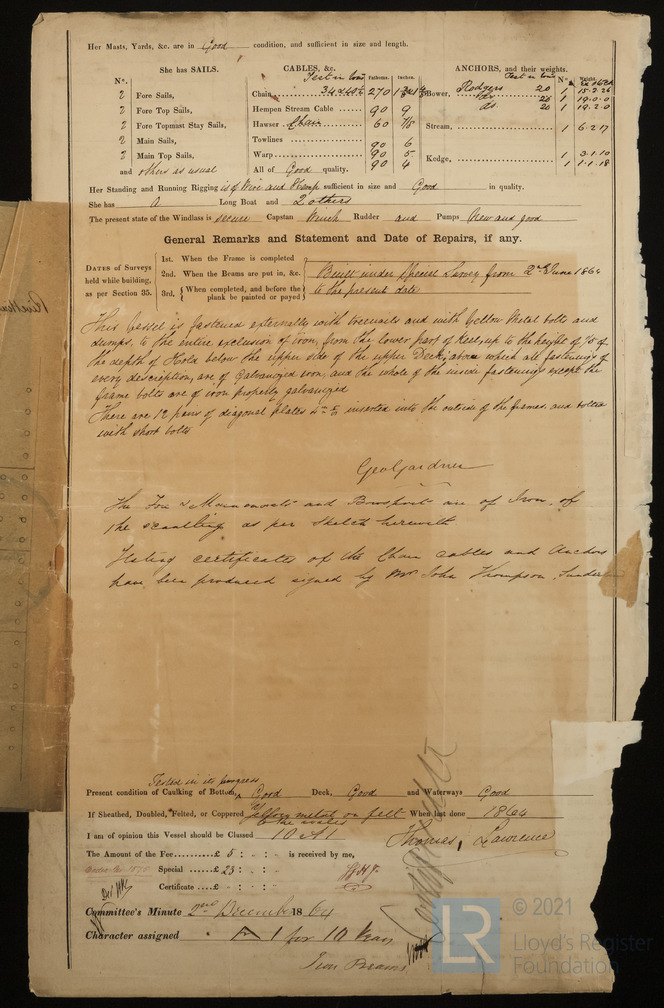 Her Masts, Yards, &c. are in Good condition, and sufficient in size and length.
She has SAILS.
N°.
2 Fore Sails,
2 Fore Top Sails,
2 Fore Topmast Stay Sails,
2 Main Sails,
2 Main Top Sails,
and others as usual
CABLES, &c.
Test in Tons Fathoms. Inches.
Chain 270
Hempen Stream Cable 90 9
Hawser Chain 60 7/8
Towlines 90 6
Warp 90 5
All of Good quality. 90 4
ANCHORS, and their weights.
Test in Tons N° Weight
Bower, Rodgers 20 1 18.2.26
do 20 1 19.0.0
do 20 1 19.2.0
Stream, 1 6.2.17
Kedge, 1 3.1.10
1 1.1.18
Her Standing and Running Rigging is of Wire and Hemp sufficient in size and Good in quality.
She has a Long Boat and 2 others
The present state of the Windlass is secure Capstan Winch Rudder and Pumps New and good
General Remarks and Statement and Date of Repairs, if any.
DATES of Surveys held while building, as per Section 35.
1st. When the Frame is completed
2nd. When the Beams are put in, &c.
3rd. When completed, and before the plank be painted or payed
Built under Special Survey from 2nd June 1864
to the present date
This Vessel is fastened externally with treenails and with Yellow Metal bolts and
dumps, to the entire exclusion of iron, from the lower part of Keel, up to the height of 4/5 of
the depth of Hold below the upper side of the upper Deck, above which all fastenings of
every description, are of Galvanized iron, and the whole of the inside fastenings except the
frame bolts are of iron properly galvanized
There are 12 pairs of diagonal plates inserted into the outside of the frames and bolted
with short bolts
Geo Gardner
The Fore & Mainmasts and Bowsprit are of Iron, of
the scantling as per Sketch herewith
Testing certificates of the Chain cables and Anchors
have been produced signed by Mr John Thompson, Sunderland
Tested in its progress
Present condition of Caulking of Bottom, Good Deck, Good and Waterways Good
If Sheathed, Doubled, Felted, or Coppered Yellow metal on felt When last done 1864
to the wales
I am of opinion this Vessel should be Classed 10 A1
Thomas Lawrence
The Amount of the Fee £ 5 : : is received by me,
Special £ 23 : :
Certificate £ : :
Committee's Minute 2nd December 1864
Character assigned A 1 for 10 Years
Iron Beams
© 2021
LR
Lloyd's Register
Foundation